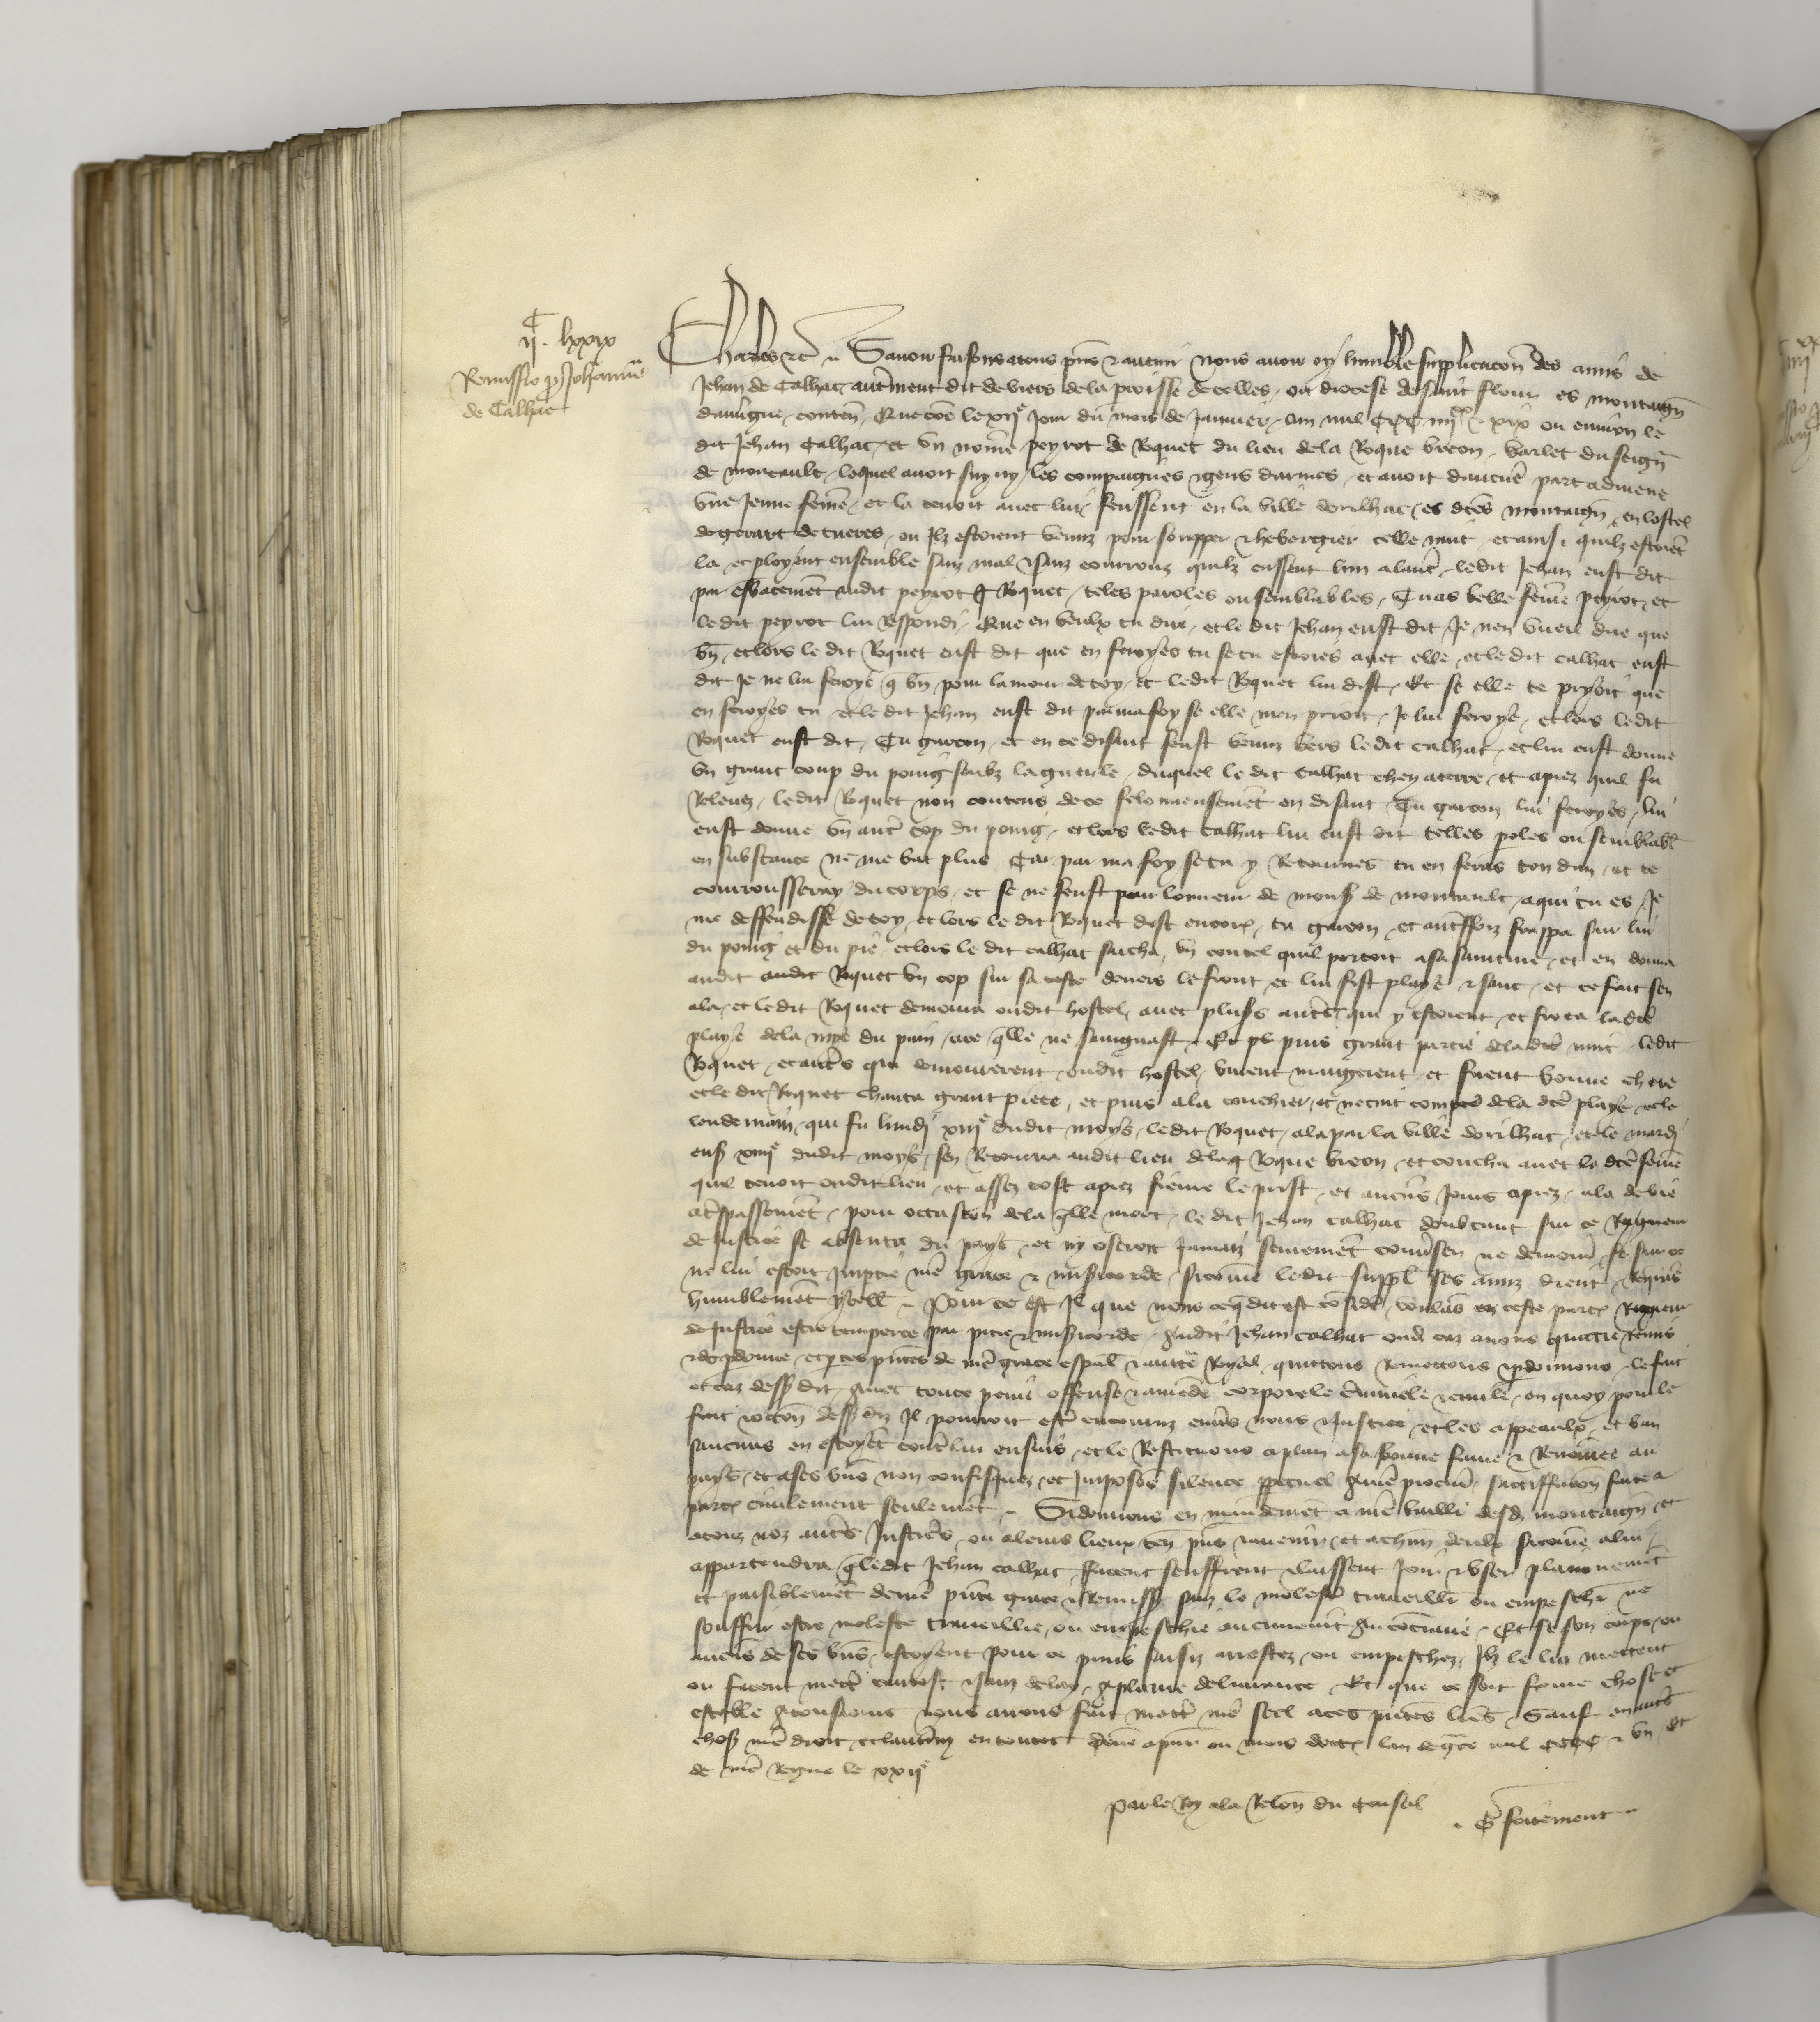 C
ij. lxxix
Remissio p Johanne
de Calhac
Charles etc. Savoir faisons a tous pns et avenir nous avoir oy humble supplicacon des amis de
Jehan de Calhac autrement dit de viers de la proisse de celles, ou diocese de saint flour es montaign
dauvgne, conten Que come le xije Jour du mois de Janvier, lan mil CCC iiijxx xix ou environ le
dit Jehan Calhac, et un nome peyrot de Roquet du lieu de la Roque breon, varlet du seign
de montault, lequel avoit suyvy les compaignes et gens darmes, et avoit
une Jeune feme, et la tenoit avec lui, feussent en la ville dorilhac, es dces montaign, en lostel
de gerart de cueres, ou Ilz estoient venuz pour soupper et hebergier celle nuit, et ainsi quilz estoiet
la, et ensemble sanz mal et sanz courrouz quilz eussent lun a lautre, ledit Jehan eust dit
par esbatement audit peyrot de Roquet, teles paroles ou semblables, Tu as belle feme peyrot, et
ledit peyrot lui respondi, Que en veulx tu dire, et le dit Jehan eust dit Je nen vueil dire que
bn, et lors le dit Roquet eust dit que en feroyes tu se tu estoies avec elle, et le dit calhac eust
dit Je ne lui feroye q bn, pour lamour de toy, et ledit Roquet lui dist, Et se elle te pryoit que
en feroyes tu et le dit Jehan eust dit par ma foy se elle men prioit, Je lui feroye, et lors ledit
Roquet eust dit, Tu garcon, et en ce disant feust venuz vers ledit calhac, et lui eust donne
un grant coup du poing soubz la gueule, duquel le dit calhac chey a terre, et apres quil fu
Relevez, ledit Roquet non contens de ce felonneusemet en disant, Tu garcon lui feroyes, lui
eust donne un autre cop du poing, et lors ledit Calhac lui eust dit telles poles ou semblabl
en substance ne me bat plus Car par ma foy se tu y Retournes tu en feras ton dam, et te
courrousseray du corps, et se ne feust pour lonneur de mons de montault, a qui tu es, Je
me deffendisse de toy, et lors le dit Roquet dist encor, tu garcon, et autreffoiz frappa sur lui
du poing et du pie, et lors le dit calhac sacha, un coutel quil portoit a sa sainture, et en donna
audit audit Roquet un cop sur sa teste devers le front, et lui fist playe et sanc, et ce fait sen
ala, et ledit Roquet demoura oudit hostel, avec plus autres qui y estoient, et frota la dce
playe de la mye du pain, ace qlle ne saingnast, Et puis grant partie dela dce nuit, ledit
Roquet, et autres qui demourerent oudit hostel, burent mangerent, et firent bonne chere
et le dit Roquet chanta grant piece, et puis ala couchier, et ne tint compte dela dce playe, et le
lendemain, qui fu lundi xiije dudit moys, ledit Roquet, ala par la ville dorilhac, et le mardi
ens xiiije dudit moys, sen Retourna audit lieu de la Roque breon, et coucha avec la dce feme
quil tenoit oudit lieu, et assez tost apres fievre le prist, et aucuns Jours apres, ala de vie
a trespassement, pour occasion dela qlle mort, le dit Jehan calhac doubtant sur ce Rigueur
de Justice se absenta du pays, et ny oseroit Jamaiz seurement converser ne demourer, se sur ce
ne lui estoit Impartie nre grace et misicorde, sicome ledit suppl ses amiz dient, Requis
humblement ycell, Pour ce est Il que nous ceq dit est conside, voulas en ceste partie Rigueur
de Justice estre temperee par pitie et misicorde, audit Jehan calhac oud cas avons quicte Remis
et pdonne, et p ces pntes de nre grace espal et auctte Royal, quictons Remettons pdonnons, le fait
et cas dess dit, avec toute peine offense et amende corporele criminele et civile, en quoy pour le
fait occon dess diz Il pourroit estre encouruz envs nous et Justice, et les appeaulx, et ban
saucuns en estoyet contre lui ensuis, et le Restituons a plain a sa bonne fame et Renomee au
pays, et a ses bns non confisquez, et Imposos silence ppetuel a nre procur, satiffacon faite a
partie civilement seulement. Si donnons en mandement a nre bailli desd montaign, et
a touz noz autres Justiciers, ou a leurs lieux ten pns et avenir, et a chun deulx sicome a lui
appartendra q ledit Jehan calhac, facent seuffrent et laissent Joir et user plainement
et paisiblement de nre pnte grace et Remiss sanz le molester traveillier ou empeschr ne
souffrir estre moleste traveillie, ou empeschie aucunement au contraire, Et se son corps, ou
aucuns de ses bns, estoyent pour ce prins saisiz arrestez, ou empeschez, Ilz le lui mettent
ou facent mettre tantost et sanz delay, a plaine delivrance, Et que ce soit ferme chose et
estable a tousiours nous avons fait mettre nre seel a ces pntes lres, Sauf en autres
chos nre droit, et lautruy en toutes Donne a paris ou mois doct lan de gce mil CCCC et un, Et
de nre Regne le xxije
Par le Roy a la Relon du Conseil